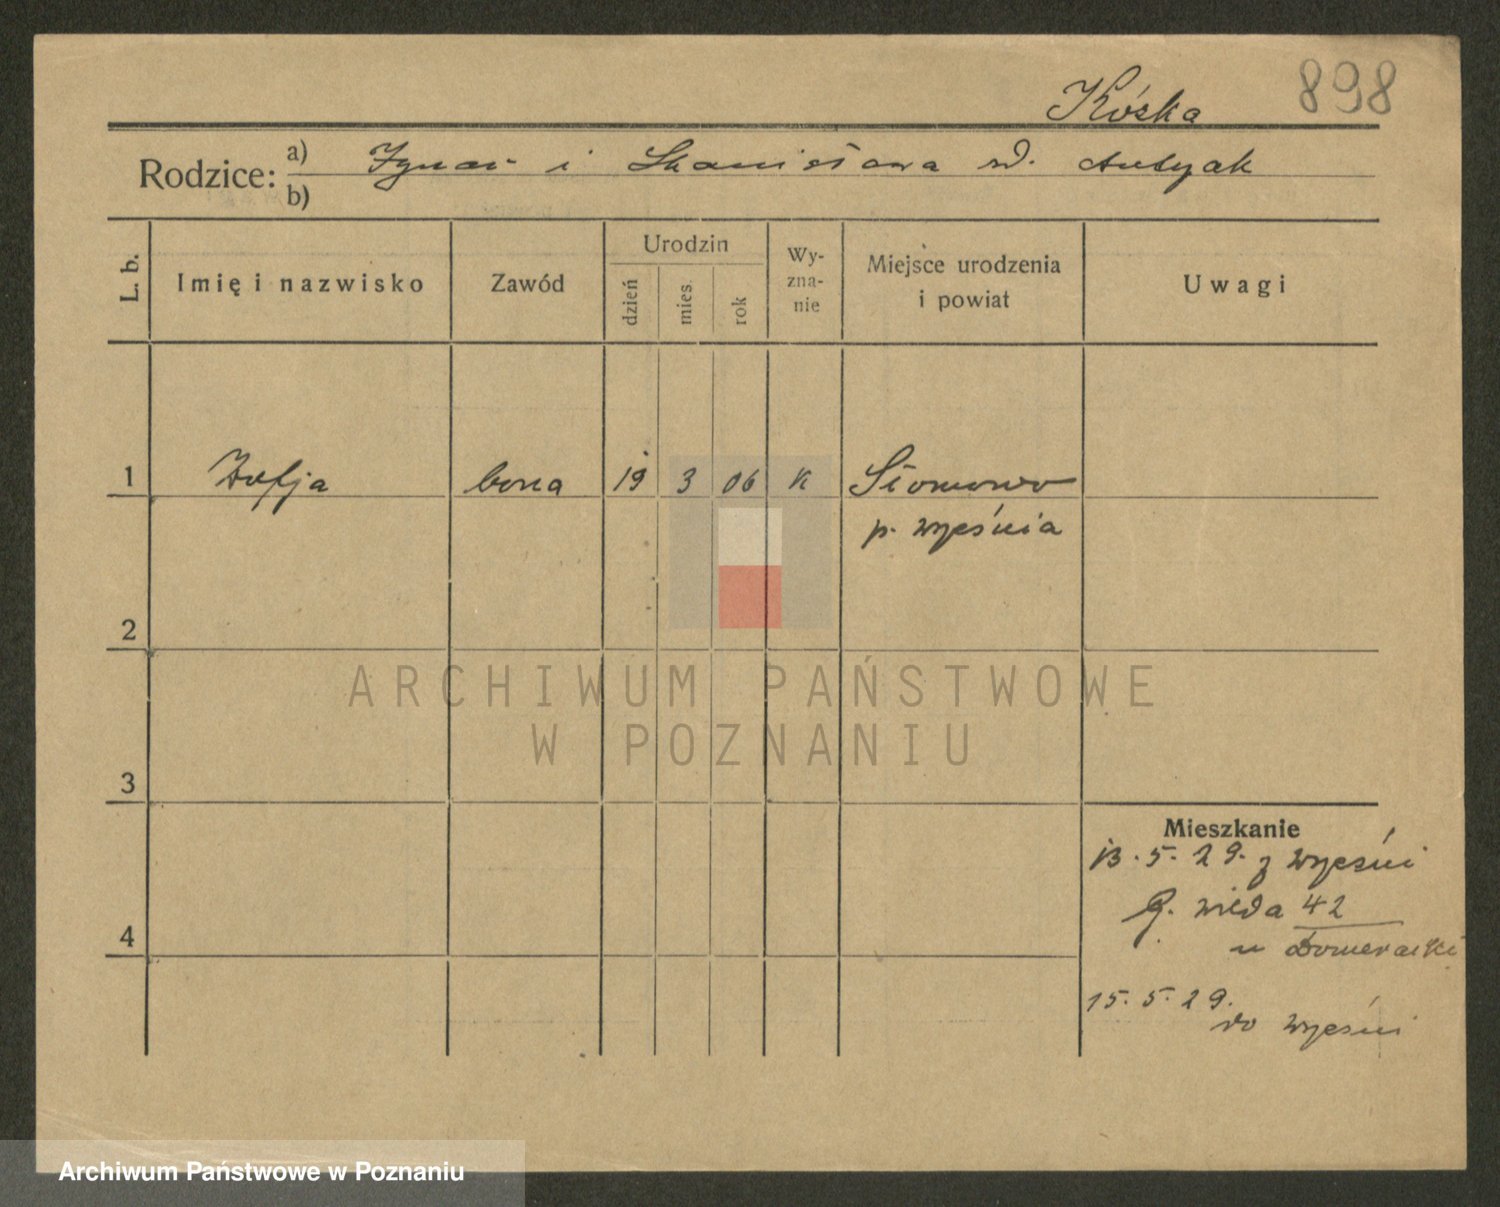 Kóska 898
Rodzice: a) Ignac i Stanisława zd. Antczak
b)
L. b. Imię i nazwisko Zawód Urodzin dzień mies. rok Wy-zna-nie Miejsce urodzenia i powiat Uwagi
1 Zofja bona 19 3 06 K Słomowo
p. Września
2
ARCHIWUM PAŃSTWOWE
W POZNANIU
3
Mieszkanie
13. 5. 29. z Wrześni
G. Wilda 42
4
u
15. 5. 29.
do Wrześni
Archiwum Państwowe w Poznaniu